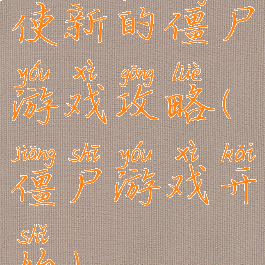 使新的僵尸
yóu xì gōng lüè
游戏攻略(
jiāng shī yóu xì kāi
僵尸游戏开
shǐ
始)